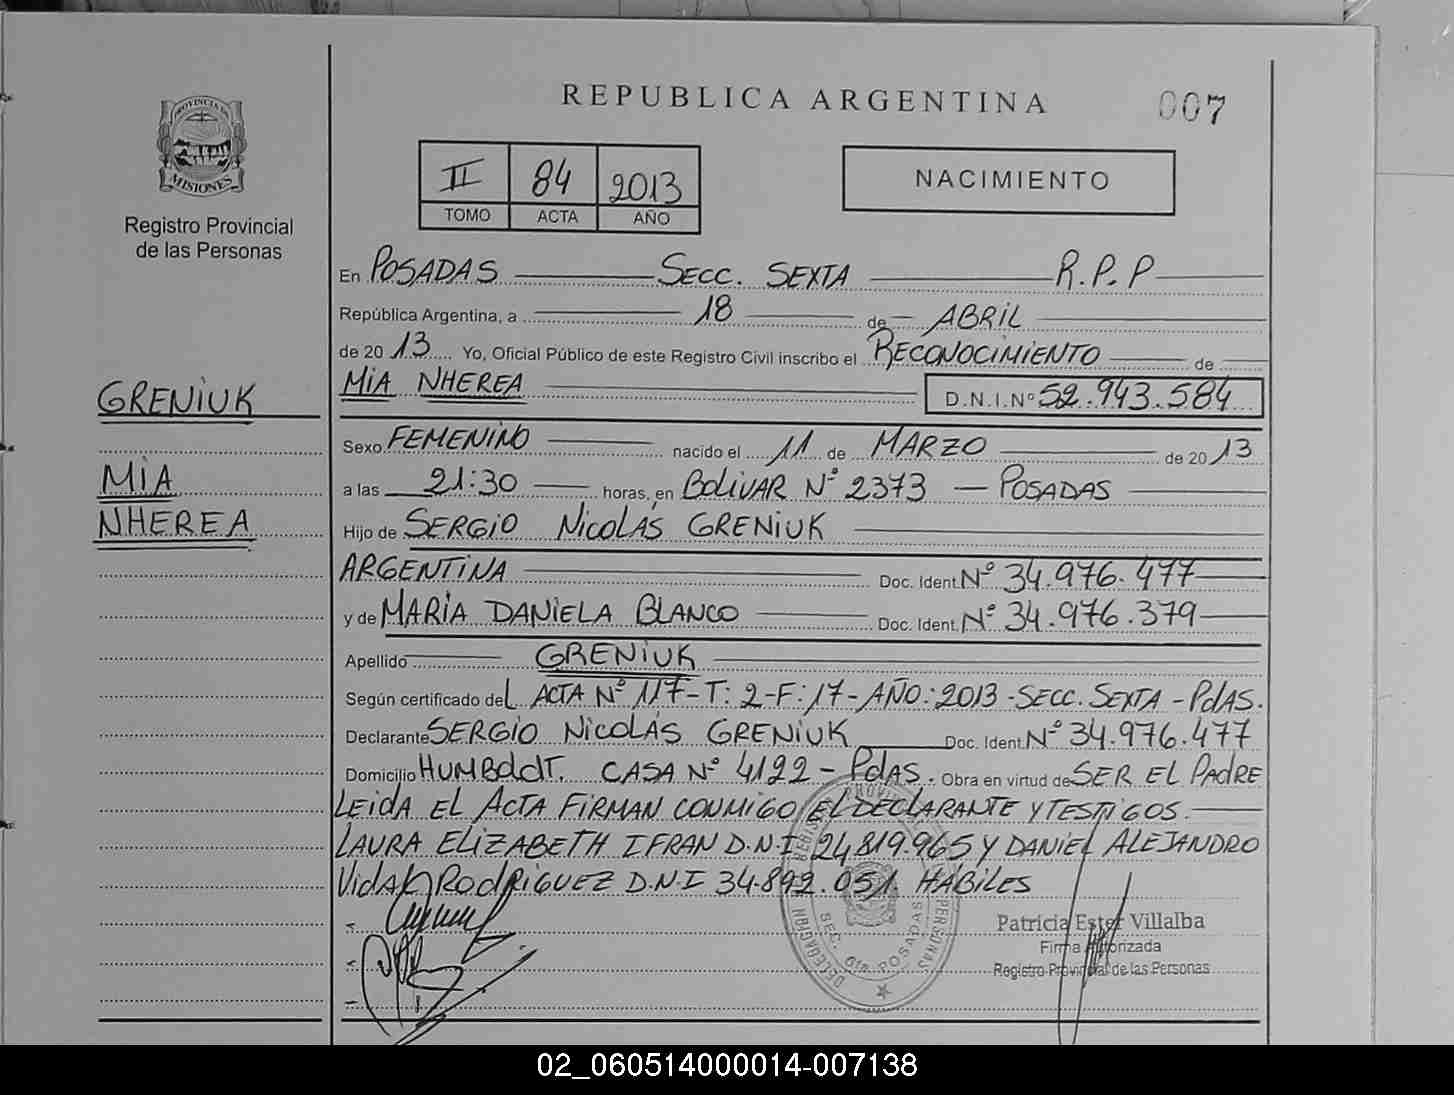 REPUBLICA ARGENTINA
007
PROVINCIA DE
MISIONES
Registro Provincial
de las Personas
II 84 2013
TOMO ACTA AÑO
NACIMIENTO
En POSADAS SECC. SEXTA R.P.P
República Argentina, a 18 de ABRIL
de 2013 Yo, Oficial Público de este Registro Civil inscribo el RECONOCIMIENTO de
MIA NHEREA D.N.I.Nº 52.943.584
GRENIUK
MIA
NHEREA
Sexo FEMENINO nacido el 11 de MARZO de 2013
a las 21:30 horas, en BOLIVAR Nº 2373 - POSADAS
Hijo de SERGIO NICOLÁS GRENIUK
ARGENTINA Doc. Ident. Nº 34.976.477
y de MARIA DANIELA BLANCO Doc. Ident. Nº 34.976.379
Apellido GRENIUK
Según certificado del ACTA Nº 117-T:2-F:17-AÑO:2013-SECC. SEXTA-PdAS.
Declarante SERGIO NICOLÁS GRENIUK Doc. Ident. Nº 34.976.477
Domicilio HUMBOLDT. CASA Nº 4122 - PdAS. Obra en virtud de SER EL PADRE
LEIDA EL ACTA FIRMAN CONMIGO EL DECLARANTE Y TESTIGOS.
LAURA ELIZABETH IFRAN D.N.I 24.819.965 Y DANIEL ALEJANDRO
VIDAL RODRIGUEZ D.N.I 34.892.051. HABILES
SEC. 6ta. POSADAS
Patricia Ester Villalba
Firma Autorizada
Registro Provincial de las Personas
02_060514000014-007138